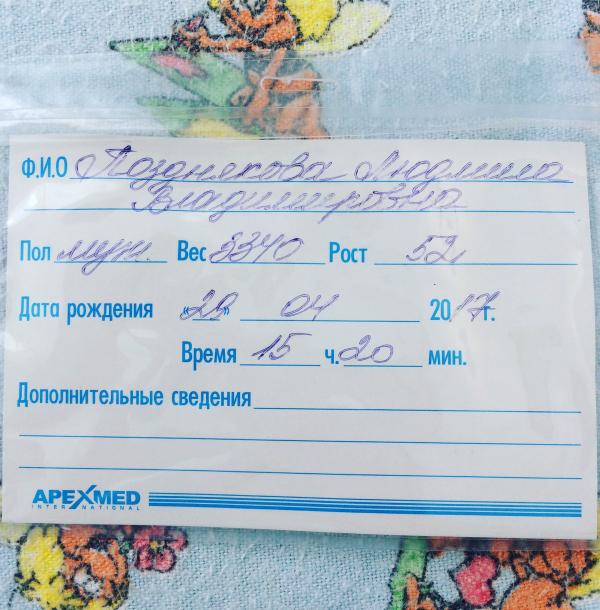 Ф.И.О Позднякова Людмила
Владимировна
Пол муж. Вес 3340 Рост 52
Дата рождения «29» 04 2017г.
Время 15 ч. 20 мин.
Дополнительные сведения
APEXMED
INTERNATIONAL